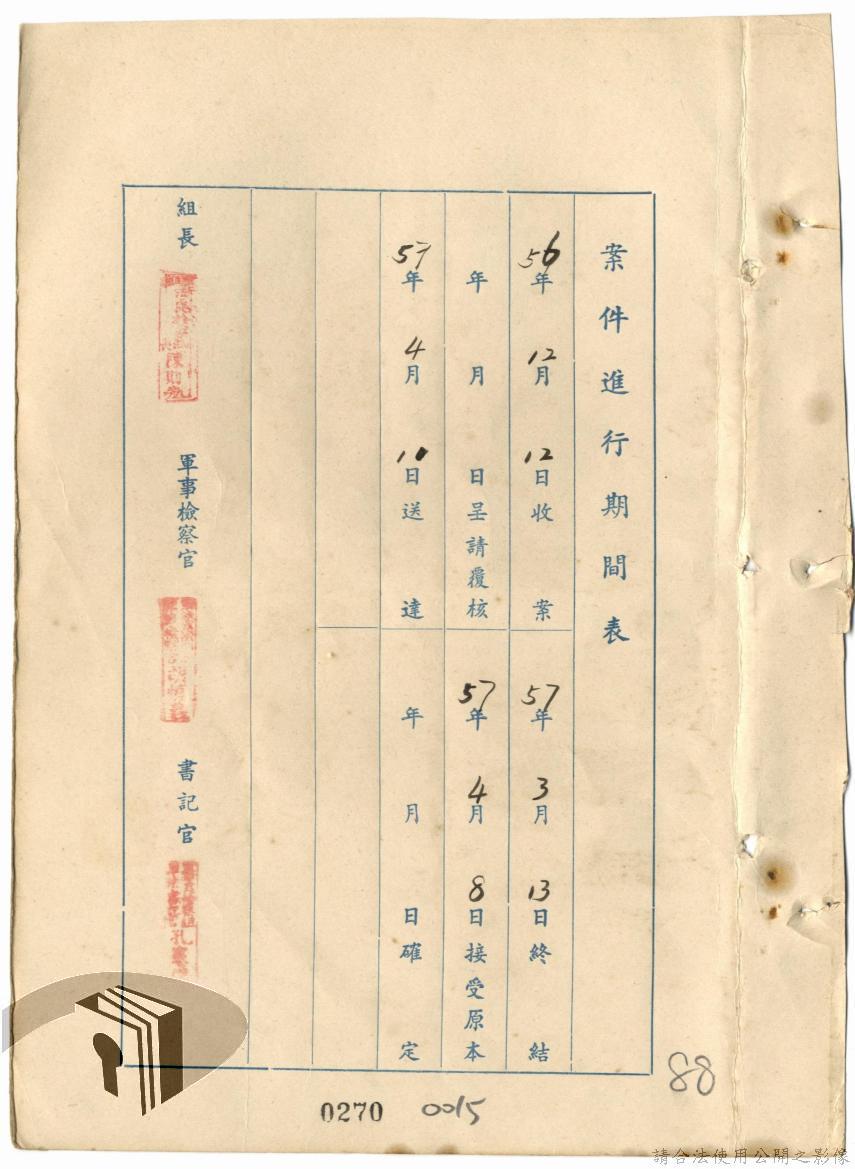 案件進行期間表
56年12月12日收案
57年3月13日終結
年月日呈請覆核
57年4月8日接受原本
57年4月10日送達
年月日確定
組長
陳則
軍事檢察官
書記官
孔憲
88
0270
0015
請合法使用公開之影像